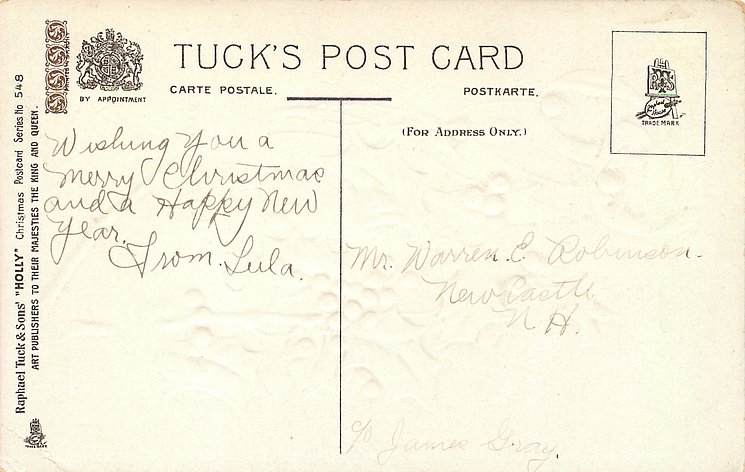 TUCK'S POST CARD
BY APPOINTMENT
CARTE POSTALE.
POSTKARTE.
(FOR ADDRESS ONLY.)
TRADE MARK
Raphael Tuck & Sons' "HOLLY" Christmas Postcard Series No 548
ART PUBLISHERS TO THEIR MAJESTIES THE KING AND QUEEN.
Wishing you a
Merry Christmas
and a Happy New
Year.
From Lula.
Mr. Warren. C. Robinson.
New Castle
N H.
c/o James Gray.